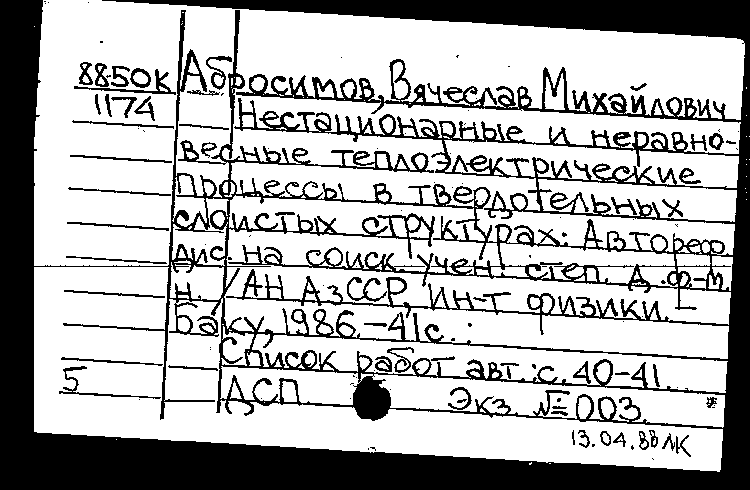 88-50К Абросимов, Вячеслав Михайлович
1174 Нестационарные и неравно-
весные теплоэлектрические
процессы в твердотельных
слоистых структурах: Автореф.
дис. на соиск. учен. степ. д. ф.-м.
н. /АН АзССР, Ин-т физики. –
Баку, 1986. – 41 с. :
Список работ авт.: с. 40-41.
5 ДСП. Экз. № 003.
13.04.88 ЛК